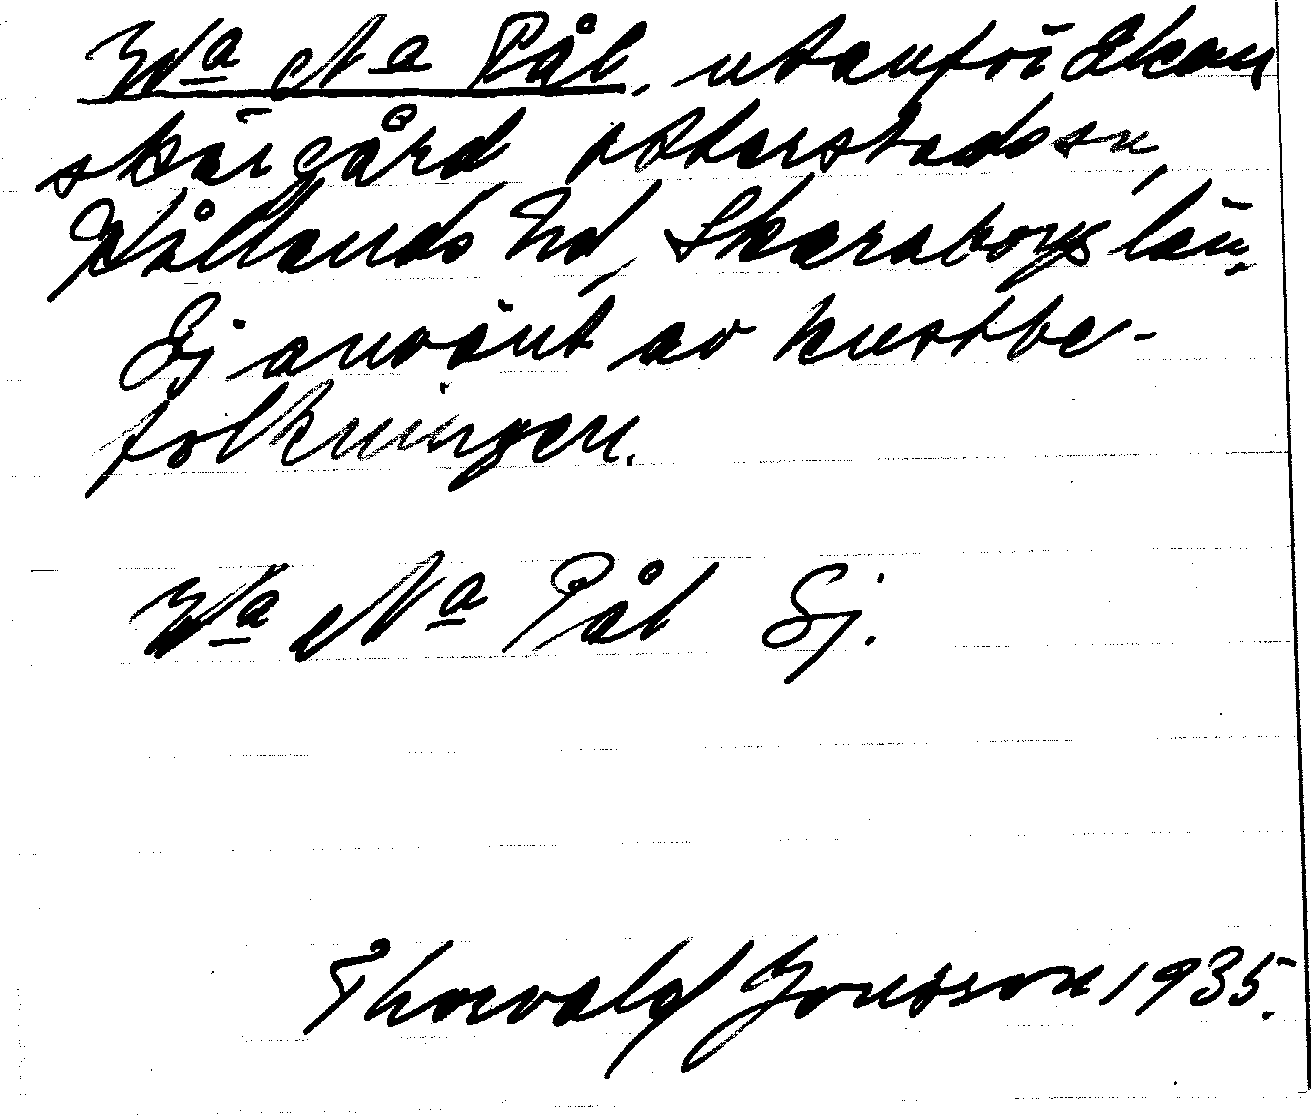 Wa Na Pål, utanför Ekens
skärgård, Otterstads sn,
Kållands hd, Skaraborgs län.
Ej använt av kustbe-
folkningen.
Wa Na Pål Ej.
Thorvald Jonsson 1935.